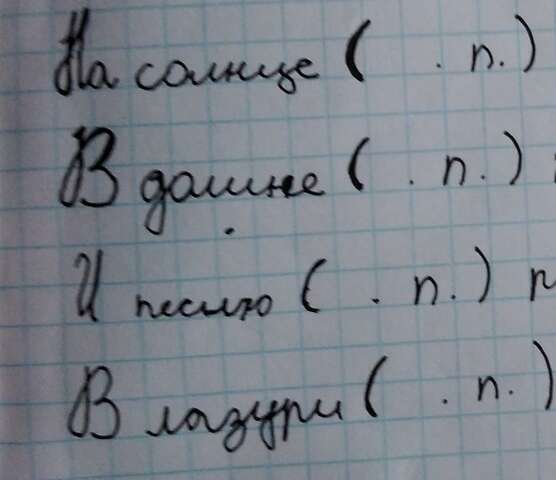 На солнце ( . п.)
В долине ( . п.)
И песню ( . п.) п
В лазури ( . п.)